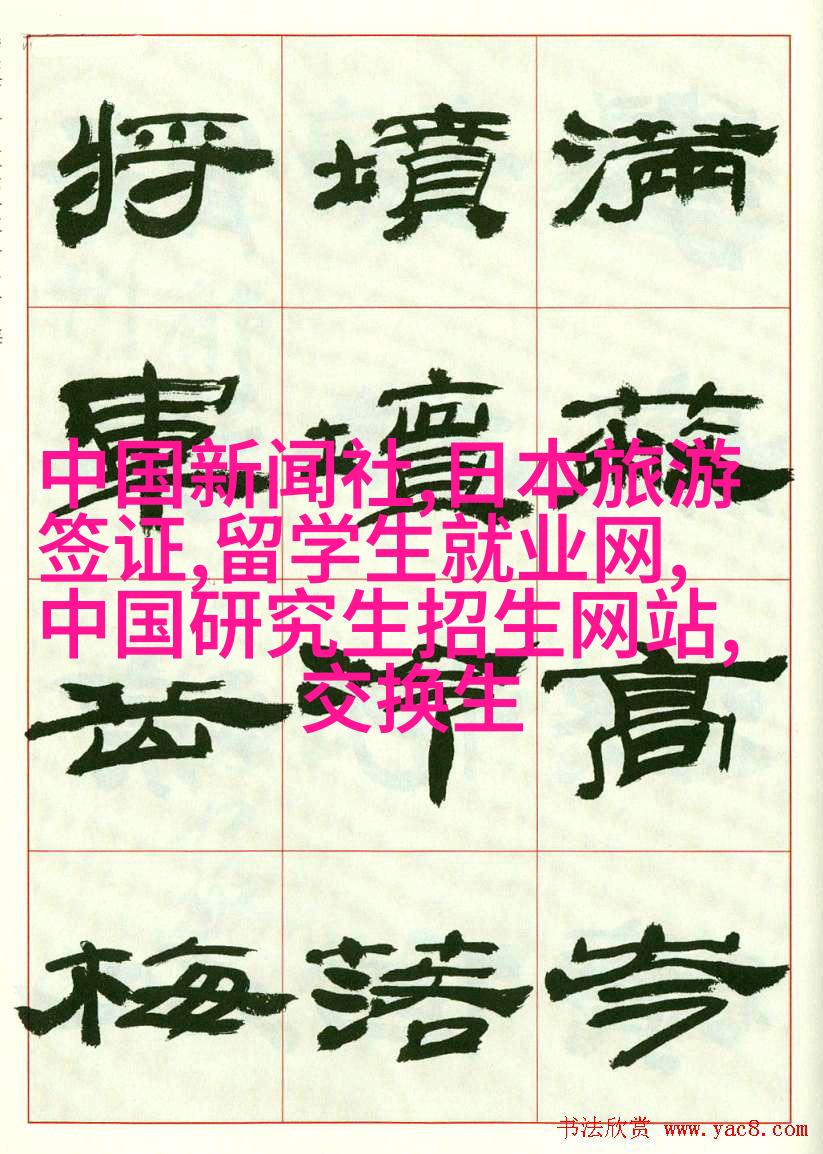 中国新闻社,日本旅游
签证,留学生就业网,
中国研究生招生网站,
交换生
滿高
墳落
将岳梅
书法欣赏 www.yac8.com